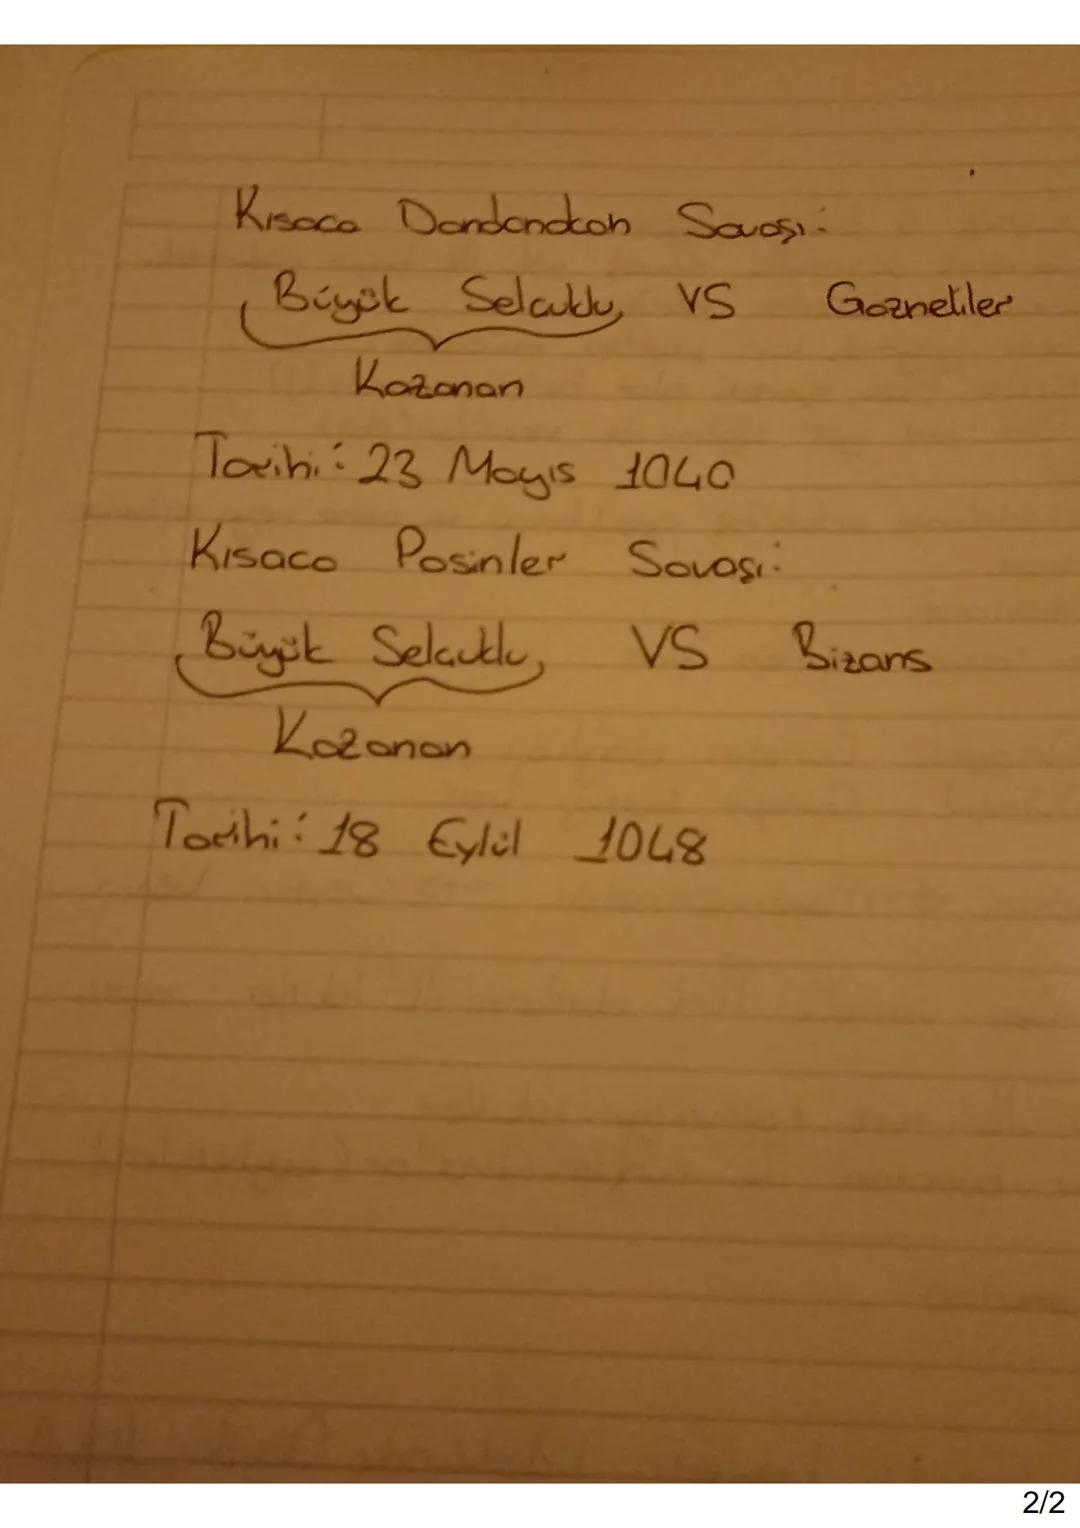 Kısaca Dandanakan Savaşı:
Büyük Selçuklu VS Gazneliler
Kazanan
Tarihi: 23 Mayıs 1040
Kısaca Pasinler Savaşı:
Büyük Selçuklu VS Bizans
Kazanan
Tarihi: 18 Eylül 1048
2/2